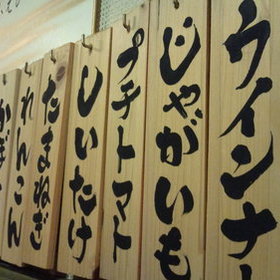 ウインナー
じゃがいも
プチトマト
しいたけ
たまねぎ
れんこん